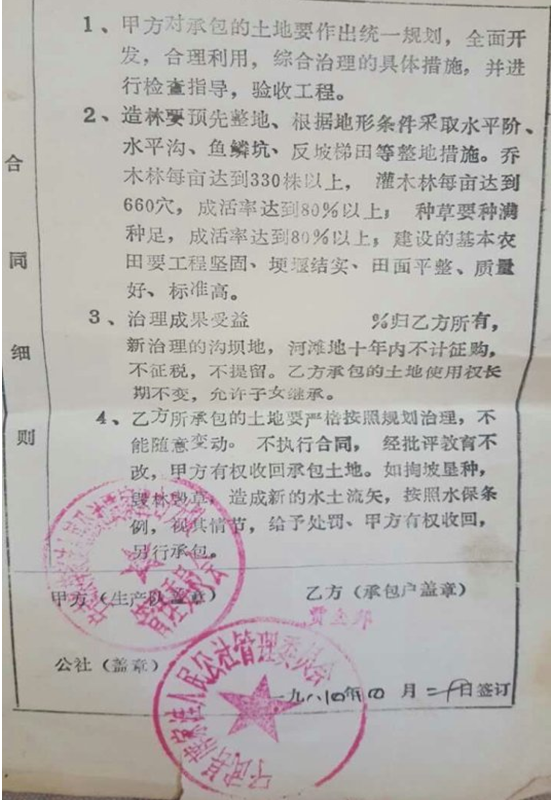 合同细则
1、甲方对承包的土地要作出统一规划，全面开
发，合理利用，综合治理的具体措施，并进
行检查指导，验收工程。
2、造林要预先整地、根据地形条件采取水平阶、
水平沟、鱼鳞坑、反坡梯田等整地措施。乔
木林每亩达到330株以上，灌木林每亩达到
660穴，成活率达到80%以上；种草要种满
种足，成活率达到80%以上；建设的基本农
田要工程坚固、埂堰结实、田面平整、质量
好、标准高。
3、治理成果受益 %归乙方所有，
新治理的沟坝地，河滩地十年内不计征购，
不征税，不提留。乙方承包的土地使用权长
期不变，允许子女继承。
4、乙方所承包的土地要严格按照规划治理，不
能随意变动。不执行合同，经批评教育不
改，甲方有权收回承包土地。如掏坡垦种，
毁林毁草，造成新的水土流失，按照水保条
例，视其情节，给予处罚、甲方有权收回，
另行承包。
甲方（生产队盖章） 乙方（承包户盖章）
管理委员会
公社（盖章）
一九八四年四月二十日签订
人民公社管理委员会